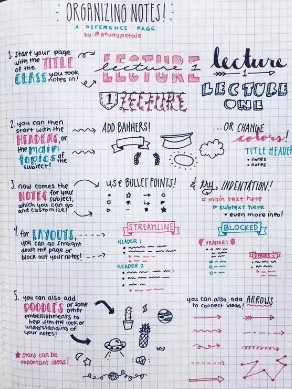 ORGANIZING NOTES!
A REFERENCE PAGE
by: @studypetals
1. Start your page
with the TITLE
of the
CLASS you took
notes in!
LECTURE
lecture 1
LECTURE
lecture
LECTURE
ONE
2. you can then
start with the
HEADERS, or
the main
topics of the
subject!
ADD BANNERS!
...OR CHANGE
colors!
TITLE HEADER
• notes
• notes
3. now comes the
NOTES for your
subject,
which you can go
and customize!
USE BULLET POINTS!
& try INDENTATION!
main text here
subtext here
even more info!
4. for LAYOUTS,
you can go straight
down the page or
block out your notes!
STREAMLINE
HEADER 1
HEADER 2
BLOCKED
HEADER 1
5. you can also add
DOODLES or some
other
embellishments to
help with the look or
understanding of
your notes!
★ stars can be
important ideas!
you can also add
to connect ideas! ARROWS